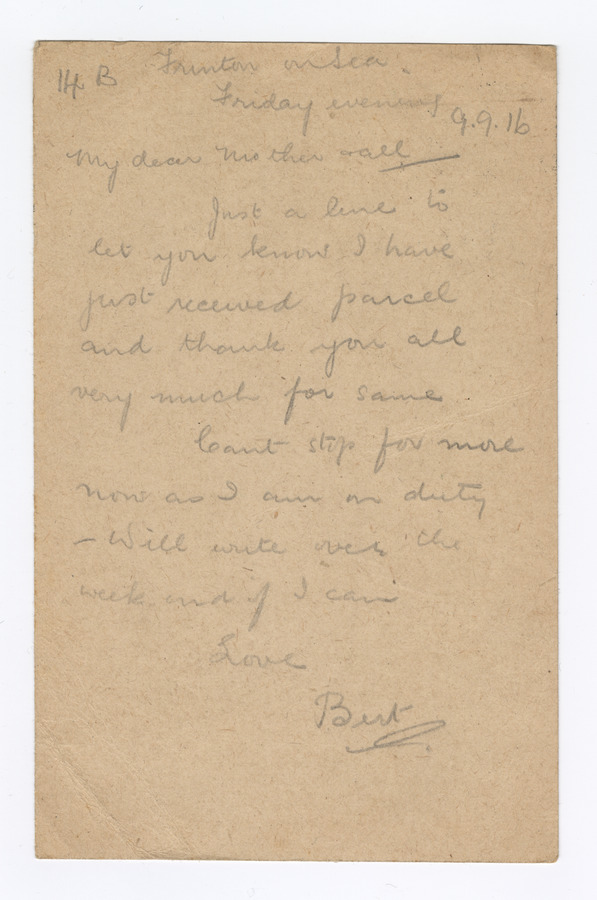 14 B Frinton on Sea.
Friday evening
9.9.16
My dear Mother & all
Just a line to
let you know I have
just received parcel
and thank you all
very much for same
Cant stop for more
now as I am on duty
- Will write over the
week end if I can
Love
Bert